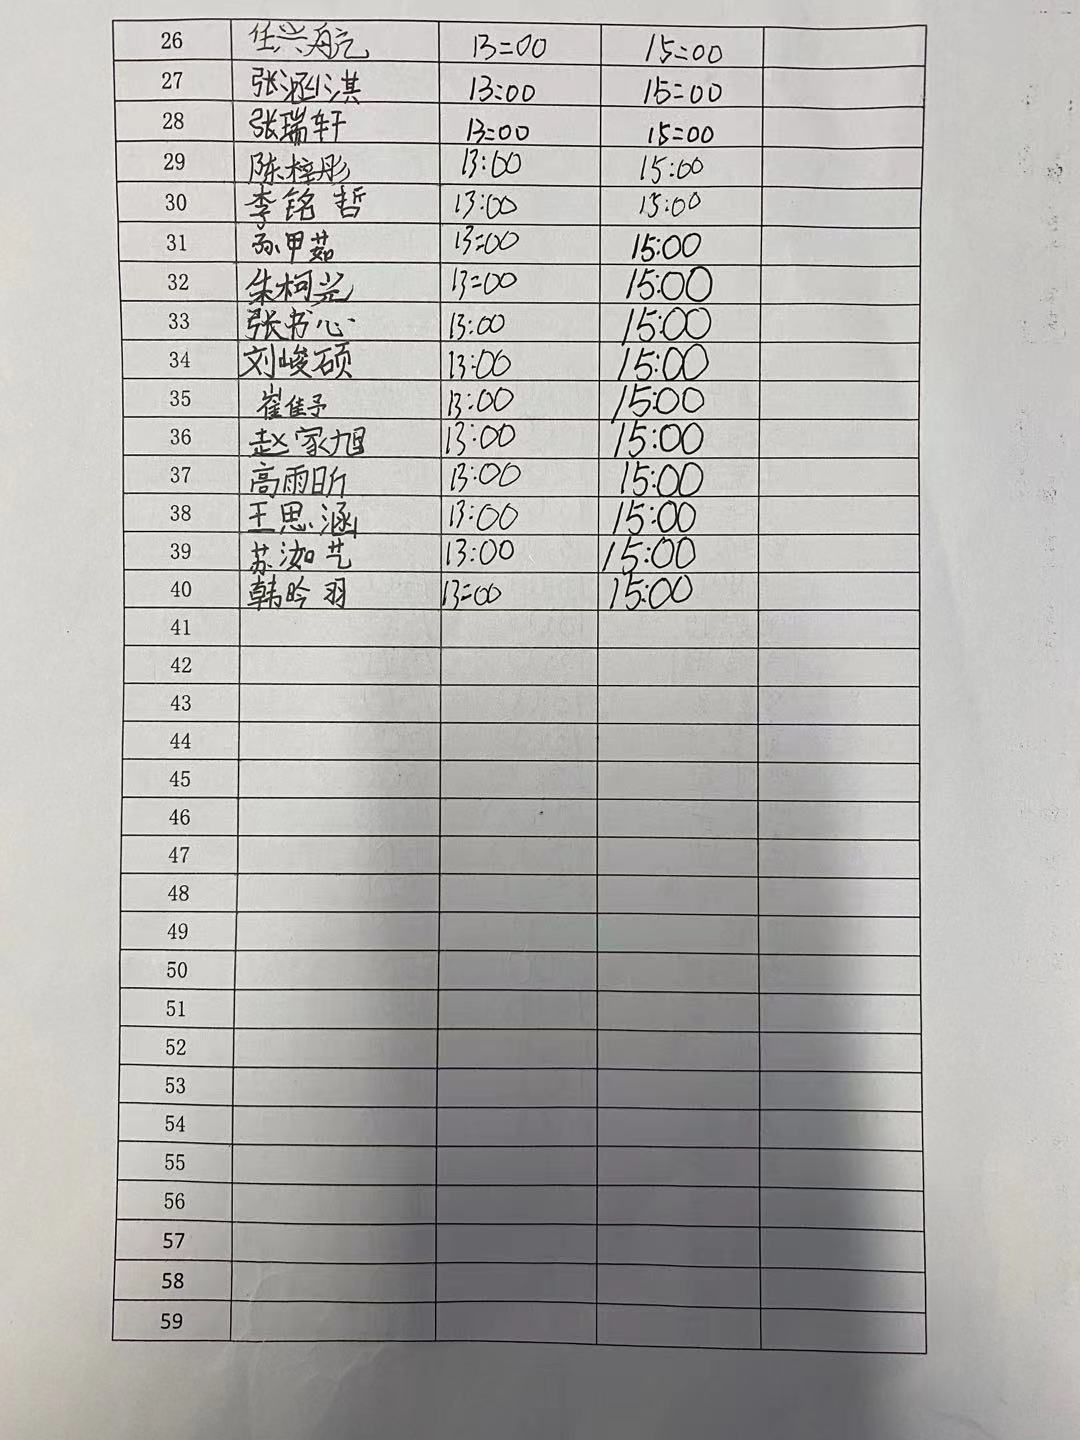 26 任兴航 13:00 15:00
27 张涵淇 13:00 15:00
28 张瑞轩 13:00 15:00
29 陈梓彤 13:00 15:00
30 李铭哲 13:00 15:00
31 孙甲茹 13:00 15:00
32 朱柯尧 13:00 15:00
33 张书心 13:00 15:00
34 刘峻硕 13:00 15:00
35 崔佳予 13:00 15:00
36 赵家旭 13:00 15:00
37 高雨昕 13:00 15:00
38 王思涵 13:00 15:00
39 苏洳艺 13:00 15:00
40 韩昑羽 13:00 15:00
41
42
43
44
45
46
47
48
49
50
51
52
53
54
55
56
57
58
59